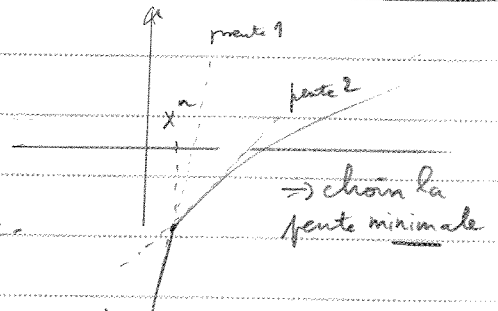 pente 1
pente 2
X^n
=> choin la
pente minimale